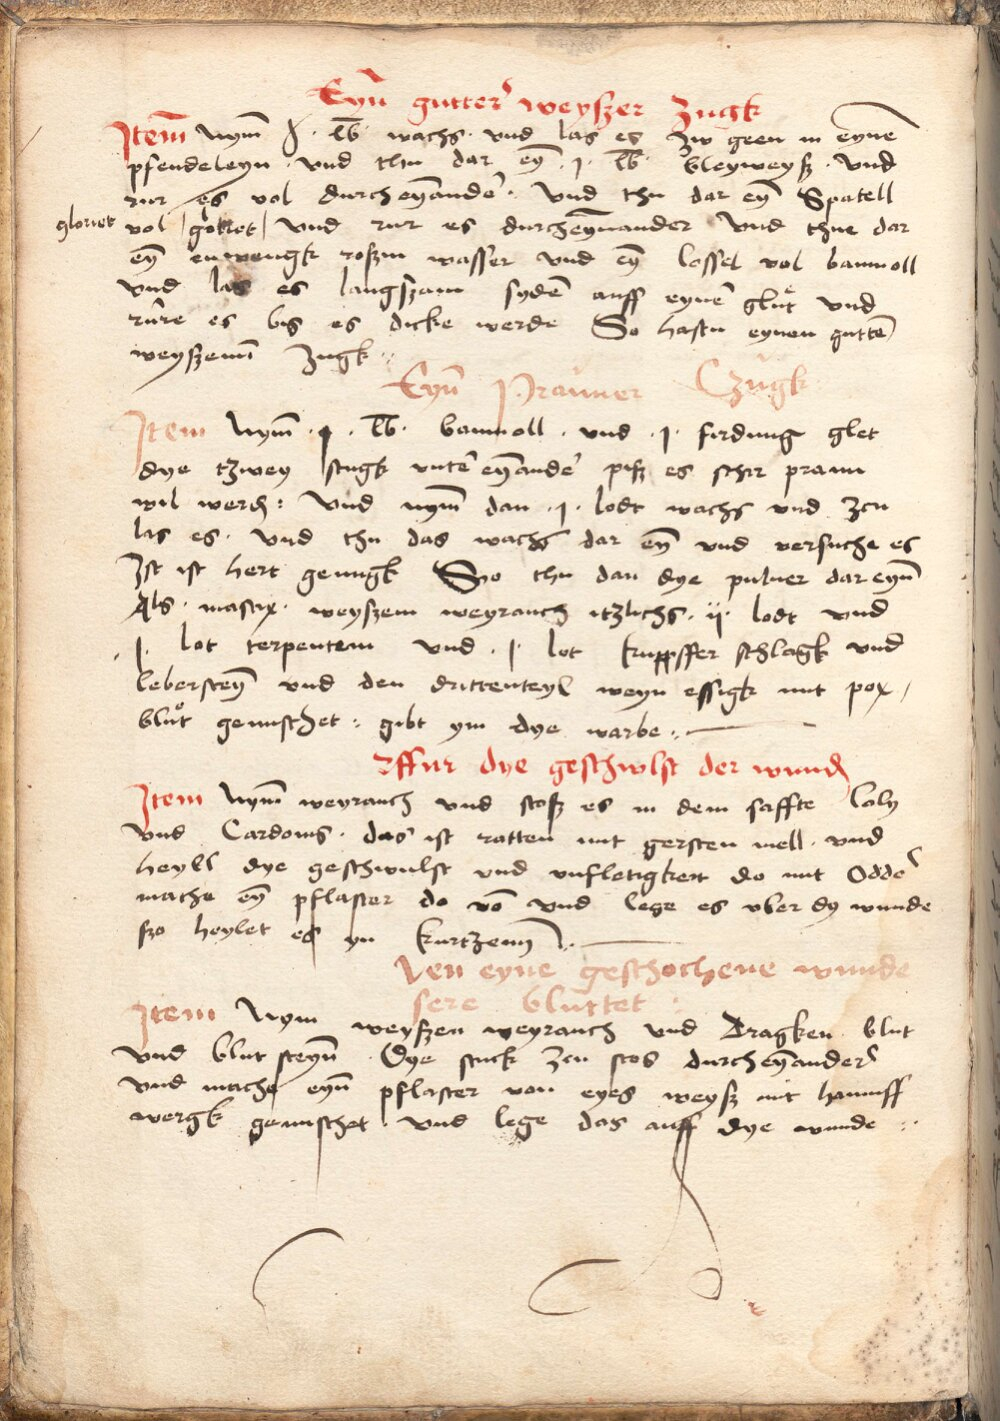 Eyn̄ gutter weyszer Zugk
Item̄ Nym̄ ꝭ · lb̄ · wachs · vnd las es zw geen in eyne
pfendeleyn · vnd thu dar eȳ · j · lb̄ · bleyweysz · vnd
rur es vol durch eȳander · Vnd thu dar eȳ Spatell
gloriet vol |gokret| Vnd rur es durcheȳnander Vnd thue dar
eȳ en wengk roszin wasser vnd eȳ loffel vol bamoll
vnd las es langszam syden̄ auff eynen̄ glůt vnd
růre es bis es dicke werde So hastu eynen gutten̄
weyszenn̄ Zugk ·:
Eyn̄ Prawner Czugk
Item Nym̄ · j · lb̄ · bamoll · vnd · j · firdung glet
dye tzwey stugk vnter eȳander pisz es schir praun
wil werd͛ : Vnd nym̄ dan · j · lodt wachs vnd zcu
las es · Vnd thu das wachs dar eȳ vnd versuche es
Ist ist hert genugk So thu dan dye puluer dar eyn̄
Als · mastix · weyszem weyrauch itzlichs · ij · lodt vnd
· j · lot terpentein vnd · j · lot kupffer schlagk vnd
lebersteȳ vnd den drittenteyl weyn essigk mit pox /
blůt gemischet : gibt ym dye varbe ·:
Ffur dye geschwlst der wund͛
Item Nym̄ weyrauch vnd stosz es in dem saffte loly
vnd Cardonis · das ist ratten mit gersten mell · vnd
heyll dye geschwulst vnd vnfletigkeit do mit Odder
mache eȳ pflaster do vō vnd lege es vber dy wunde
szo heylet es yn kurtzenn̄ ·:
Wen eyne gestochene wunde
sere bluttet :
Item Nym weyszen weyrauch vnd Dragken blut
vnd blut steyn̄ · Dye stuck zcu stos durch eȳander
vnd mache eyn̄ pflaster von eyes weysz mit hanuff
wergk gemischet vnd lege das auff dye wunde ·: